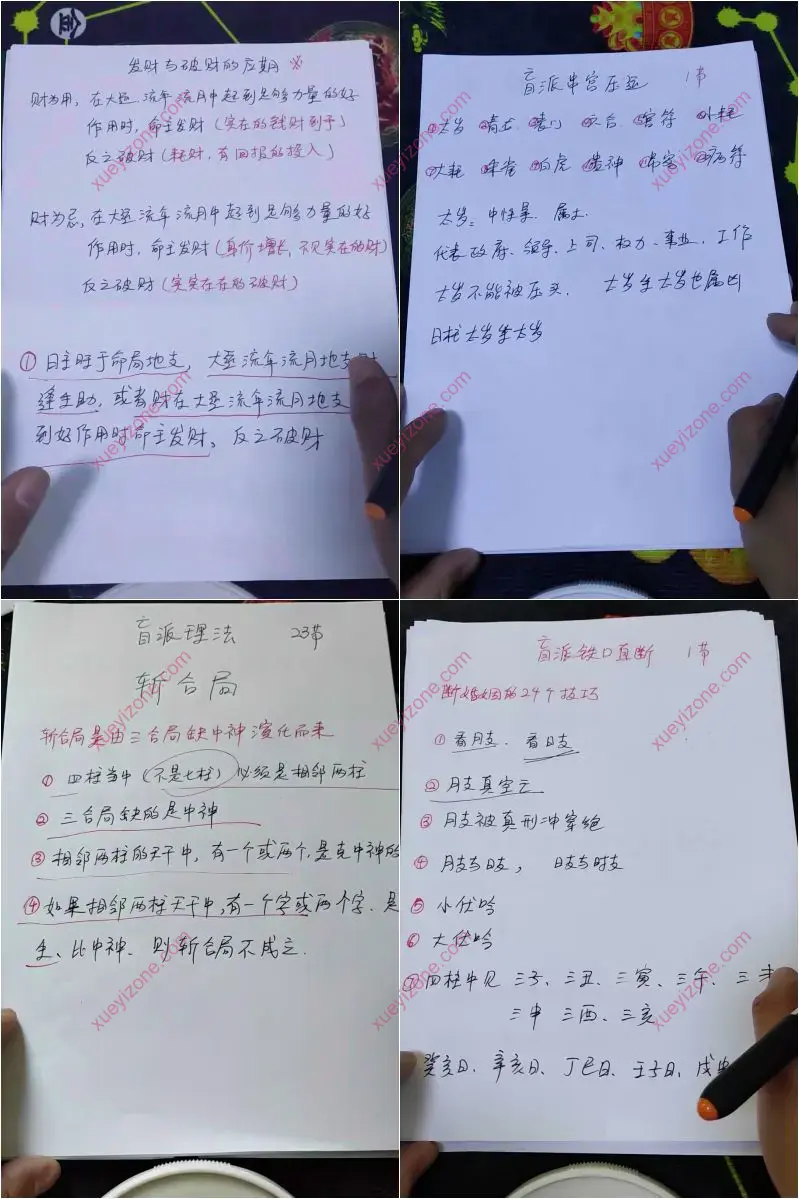 发财与破财的应期 ※
财为用,在大运流年流月中起到足够力量的好
作用时,命主发财(实在的钱财到手)
反之破财(耗财,有回报的投入)
财为忌,在大运流年流月中起到足够力量的好
作用时,命主发财(身价增长,不见实在的财)
反之破财(实实在在的破财)
① 日主旺于命局地支,大运流年流月地支财
逢生助,或者财在大运流年流月地支
到好作用时命主发财。反之破财
盲派串宫压运 1节
①太岁 ②青龙 ③丧门 ④六合 ⑤官符 ⑥小耗
⑦大耗 ⑧朱雀 ⑨白虎 ⑩贵神 ⑪吊客 ⑫病符
太岁:中性星、属土.
代表政府、领导、上司、权力、事业、工作
太岁不能被压头. 太岁坐太岁也属凶
日柱太岁坐太岁
盲派理法 23节
斩合局
斩合局是由三合局缺中神演化而来
① 四柱当中(不是七柱)必须是相邻两柱
② 三合局缺的是中神
③ 相邻两柱的天干中,有一个或两个,是克中神的
④ 如果相邻两柱天干中,有一个字或两个字.是
生、比中神、则斩合局不成立.
盲派铁口直断 1节
断婚姻的24个技巧
① 看月支. 看日支
② 月支真空亡
③ 月支被真刑冲穿绝
④ 月支与日支, 日支与时支
⑤ 小伏吟
⑥ 大伏吟
⑦ 四柱中见 三子、三丑、三寅、三午、三未
三申 三酉、三亥
癸亥日、辛亥日、丁巳日、壬子日、戊申
xueyizone.com
xueyizone.com
xueyizone.com
xueyizone.com
xueyizone.com
xueyizone.com
xueyizone.com
xueyizone.com
xueyizone.com
xueyizone.com
xueyizone.com
xueyizone.com